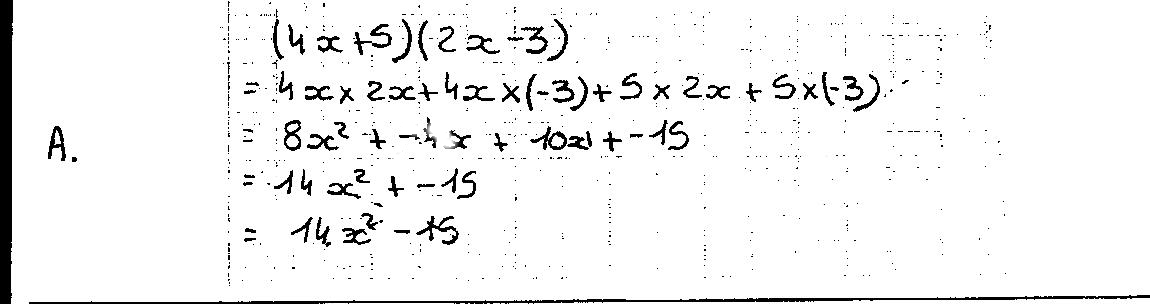 (4x+5)(2x-3)
= 4x × 2x + 4x × (-3) + 5 × 2x + 5 × (-3)
A.
= 8x² + -4x + 10x + -15
= 14x² + -15
= 14x² - 15